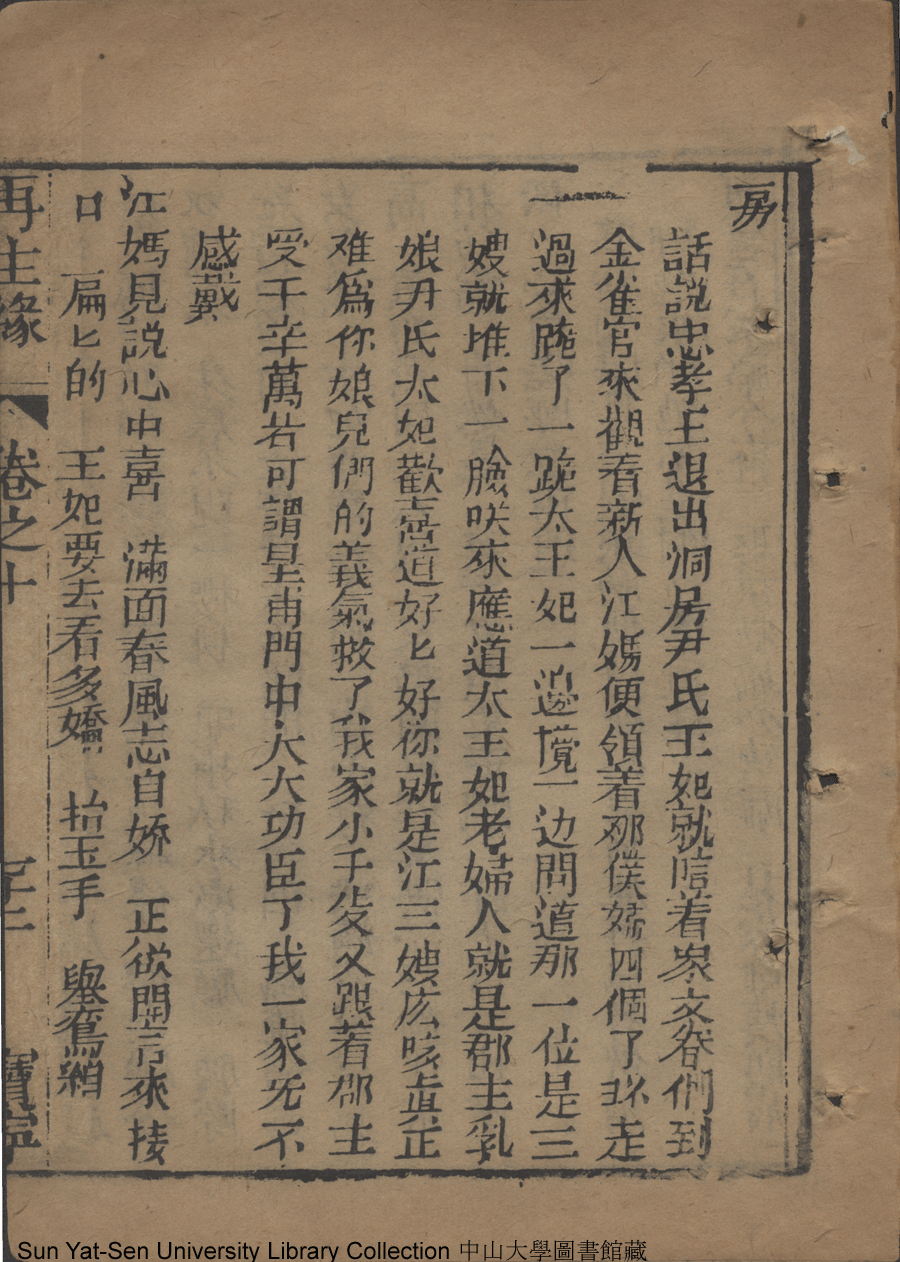 房
話說忠孝王退出洞房尹氏王妃就陪着衆女眷們到
金雀宫來觀看新人江媽便領着那僕婦四個丫环走
過來跪了一跪太王妃一邊攙一边問道那一位是三
嫂就堆下一臉咲來應道太王妃老婦人就是郡主乳
娘尹氏太妃歡喜道好匕好你就是江三嫂庅咳真正
难為你娘兒們的義氣救了我家小千歲又跟着郡主
受千辛萬苦可謂是甫門中大大功臣了我一家旡不
感戴
江媽見說心中喜 滿面春風志自娇 正欲開言來接
口 扁匕的 王妃要去看多嬌 抬玉手 舉鸞綃
再生緣 卷之十 寶寧
Sun Yat-Sen University Library Collection 中山大學圖書館藏